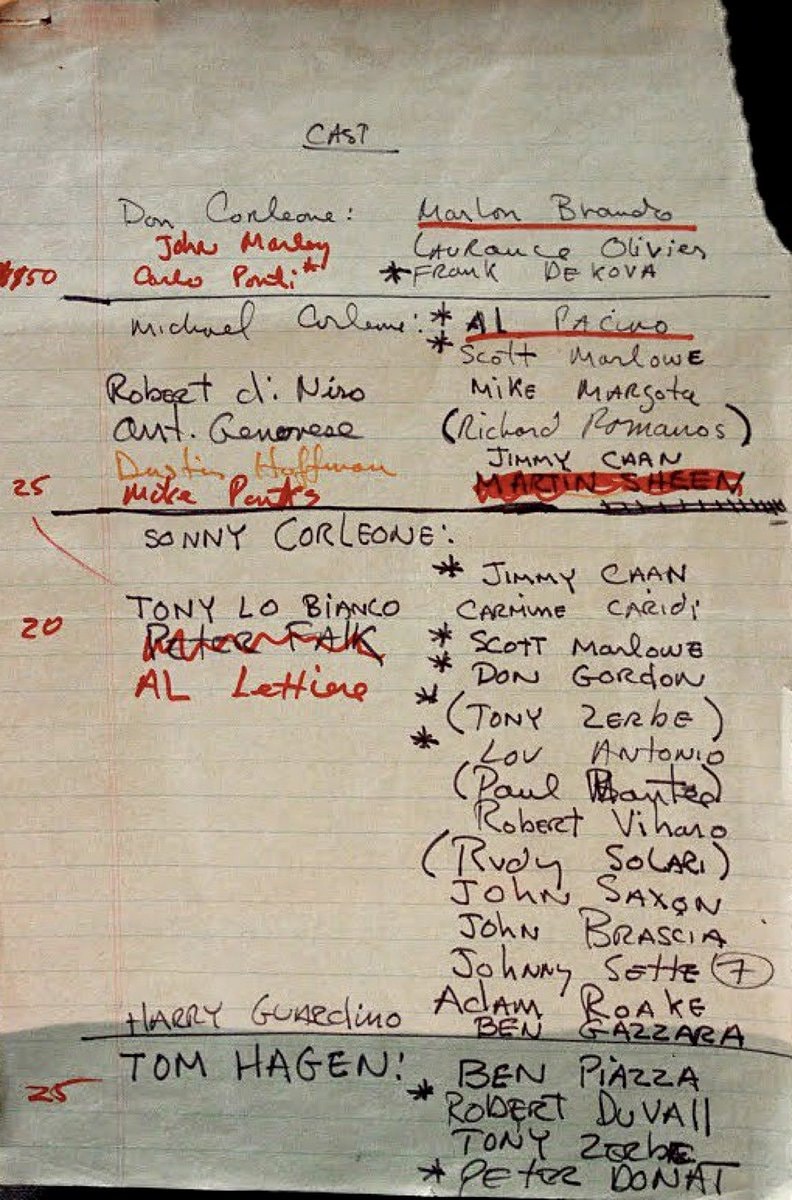 CAST
Don Corleone: Marlon Brando
John Marley Laurance Olivier
$150 Carlo Ponti* * FRANK DE KOVA
Michael Corleone: * AL PACINO
* Scott Marlowe
Robert di Niro MIKE MARGOTA
Ant. Genovese (Richard Romanos)
Dustin Hoffman JIMMY CAAN
25 Mike Parks MARTIN SHEEN
SONNY CORLEONE:
* JIMMY CAAN
TONY LO BIANCO CARMINE CARIDI
20 PETER FALK * SCOTT MARLOWE
AL Lettiere * DON GORDON
* (TONY ZERBE)
* LOU ANTONIO
(Paul)
Robert Viharo
(Rudy SOLARI)
JOHN SAXON
JOHN BRASCIA
Johnny Sette 7
Adam ROAKE
HARRY GUARdino BEN GAZZARA
TOM HAGEN: BEN PIAZZA
25 * ROBERT DUVAll
TONY ZERBE
* PETER DONAT